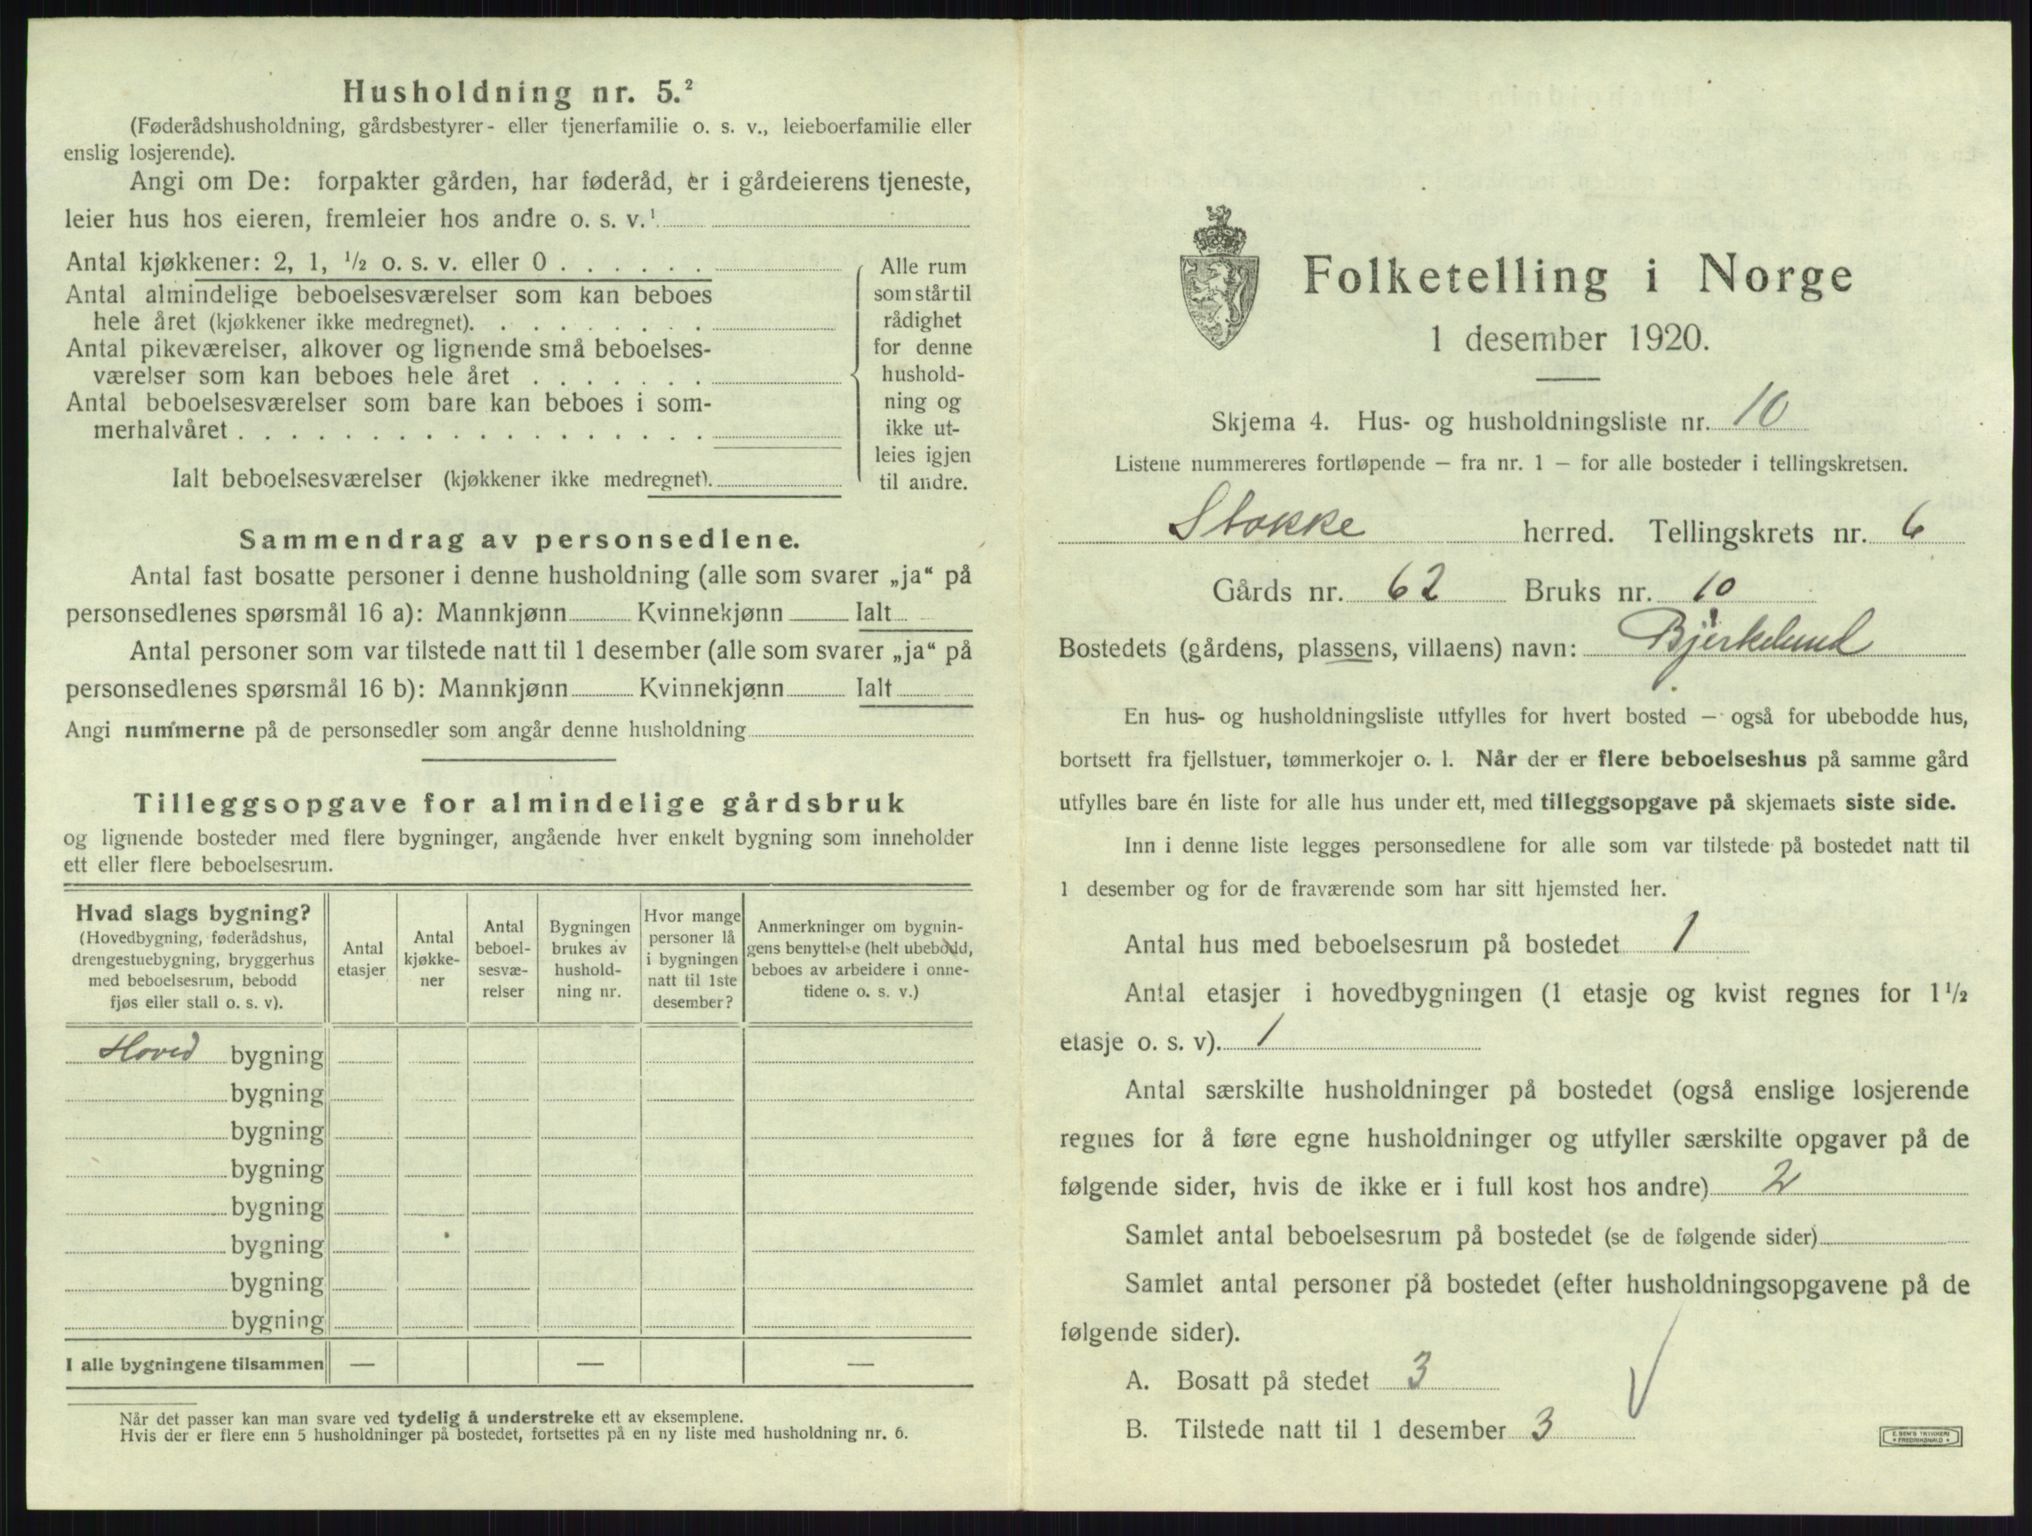 Husholdning nr. 5.²
(Føderådshusholdning, gårdsbestyrer- eller tjenerfamilie o. s. v., leieboerfamilie eller
enslig losjerende).
Angi om De: forpakter gården, har føderåd, er i gårdeierens tjeneste,
leier hus hos eieren, fremleier hos andre o. s. v.¹
Antal kjøkkener: 2, 1, ½ o. s. v. eller 0 . . . . . .
Antal almindelige beboelsesværelser som kan beboes
hele året (kjøkkener ikke medregnet). . . . . . . . .
Antal pikeværelser, alkover og lignende små beboelses-
værelser som kan beboes hele året . . . . . . .
Antal beboelsesværelser som bare kan beboes i som-
merhalvåret . . . . . . . . . . . . . . . . . .
Ialt beboelsesværelser (kjøkkener ikke medregnet).
Alle rum
som står til
rådighet
for denne
hushold-
ning og
ikke ut-
leies igjen
til andre.
Sammendrag av personsedlene.
Antal fast bosatte personer i denne husholdning (alle som svarer „ja“ på
personsedlenes spørsmål 16 a): Mannkjønn Kvinnekjønn Ialt
Antal personer som var tilstede natt til 1 desember (alle som svarer „ja“ på
personsedlenes spørsmål 16 b): Mannkjønn Kvinnekjønn Ialt
Angi nummerne på de personsedler som angår denne husholdning
Tilleggsopgave for almindelige gårdsbruk
og lignende bosteder med flere bygninger, angående hver enkelt bygning som inneholder
ett eller flere beboelsesrum.
Hvad slags bygning?
(Hovedbygning, føderådshus,
drengestuebygning, bryggerhus
med beboelsesrum, bebodd
fjøs eller stall o. s. v).
Antal
etasjer
Antal
kjøkke-
ner
Antal
beboel-
sesvæ-
relser
Bygningen
brukes av
hushold-
ning nr.
Hvor mange
personer lå
i bygningen
natt til 1ste
desember?
Anmerkninger om bygnin-
gens benyttelse (helt ubebodd,
beboes av arbeidere i onne-
tidene o. s. v.)
Hoved bygning
bygning
bygning
bygning
bygning
bygning
bygning
bygning
I alle bygningene tilsammen — — —
Når det passer kan man svare ved tydelig å understreke ett av eksemplene.
Hvis der er flere enn 5 husholdninger på bostedet, fortsettes på en ny liste med husholdning nr. 6.
Folketelling i Norge
1 desember 1920.
Skjema 4. Hus- og husholdningsliste nr. 10
Listene nummereres fortløpende – fra nr. 1 – for alle bosteder i tellingskretsen.
Stokke herred. Tellingskrets nr. 6
Gårds nr. 62 Bruks nr. 10
Bostedets (gårdens, plassens, villaens) navn: Bjerkelund
En hus- og husholdningsliste utfylles for hvert bosted – også for ubebodde hus,
bortsett fra fjellstuer, tømmerkojer o. l. Når der er flere beboelseshus på samme gård
utfylles bare én liste for alle hus under ett, med tilleggsopgave på skjemaets siste side.
Inn i denne liste legges personsedlene for alle som var tilstede på bostedet natt til
1 desember og for de fraværende som har sitt hjemsted her.
Antal hus med beboelsesrum på bostedet 1
Antal etasjer i hovedbygningen (1 etasje og kvist regnes for 1½
etasje o. s. v). 1
Antal særskilte husholdninger på bostedet (også enslige losjerende
regnes for å føre egne husholdninger og utfyller særskilte opgaver på de
følgende sider, hvis de ikke er i full kost hos andre) 2
Samlet antal beboelsesrum på bostedet (se de følgende sider)
Samlet antal personer på bostedet (efter husholdningsopgavene på de
følgende sider).
A. Bosatt på stedet 3
B. Tilstede natt til 1 desember 3
E. SEM'S TRYKKERI
FREDRIKSHALD